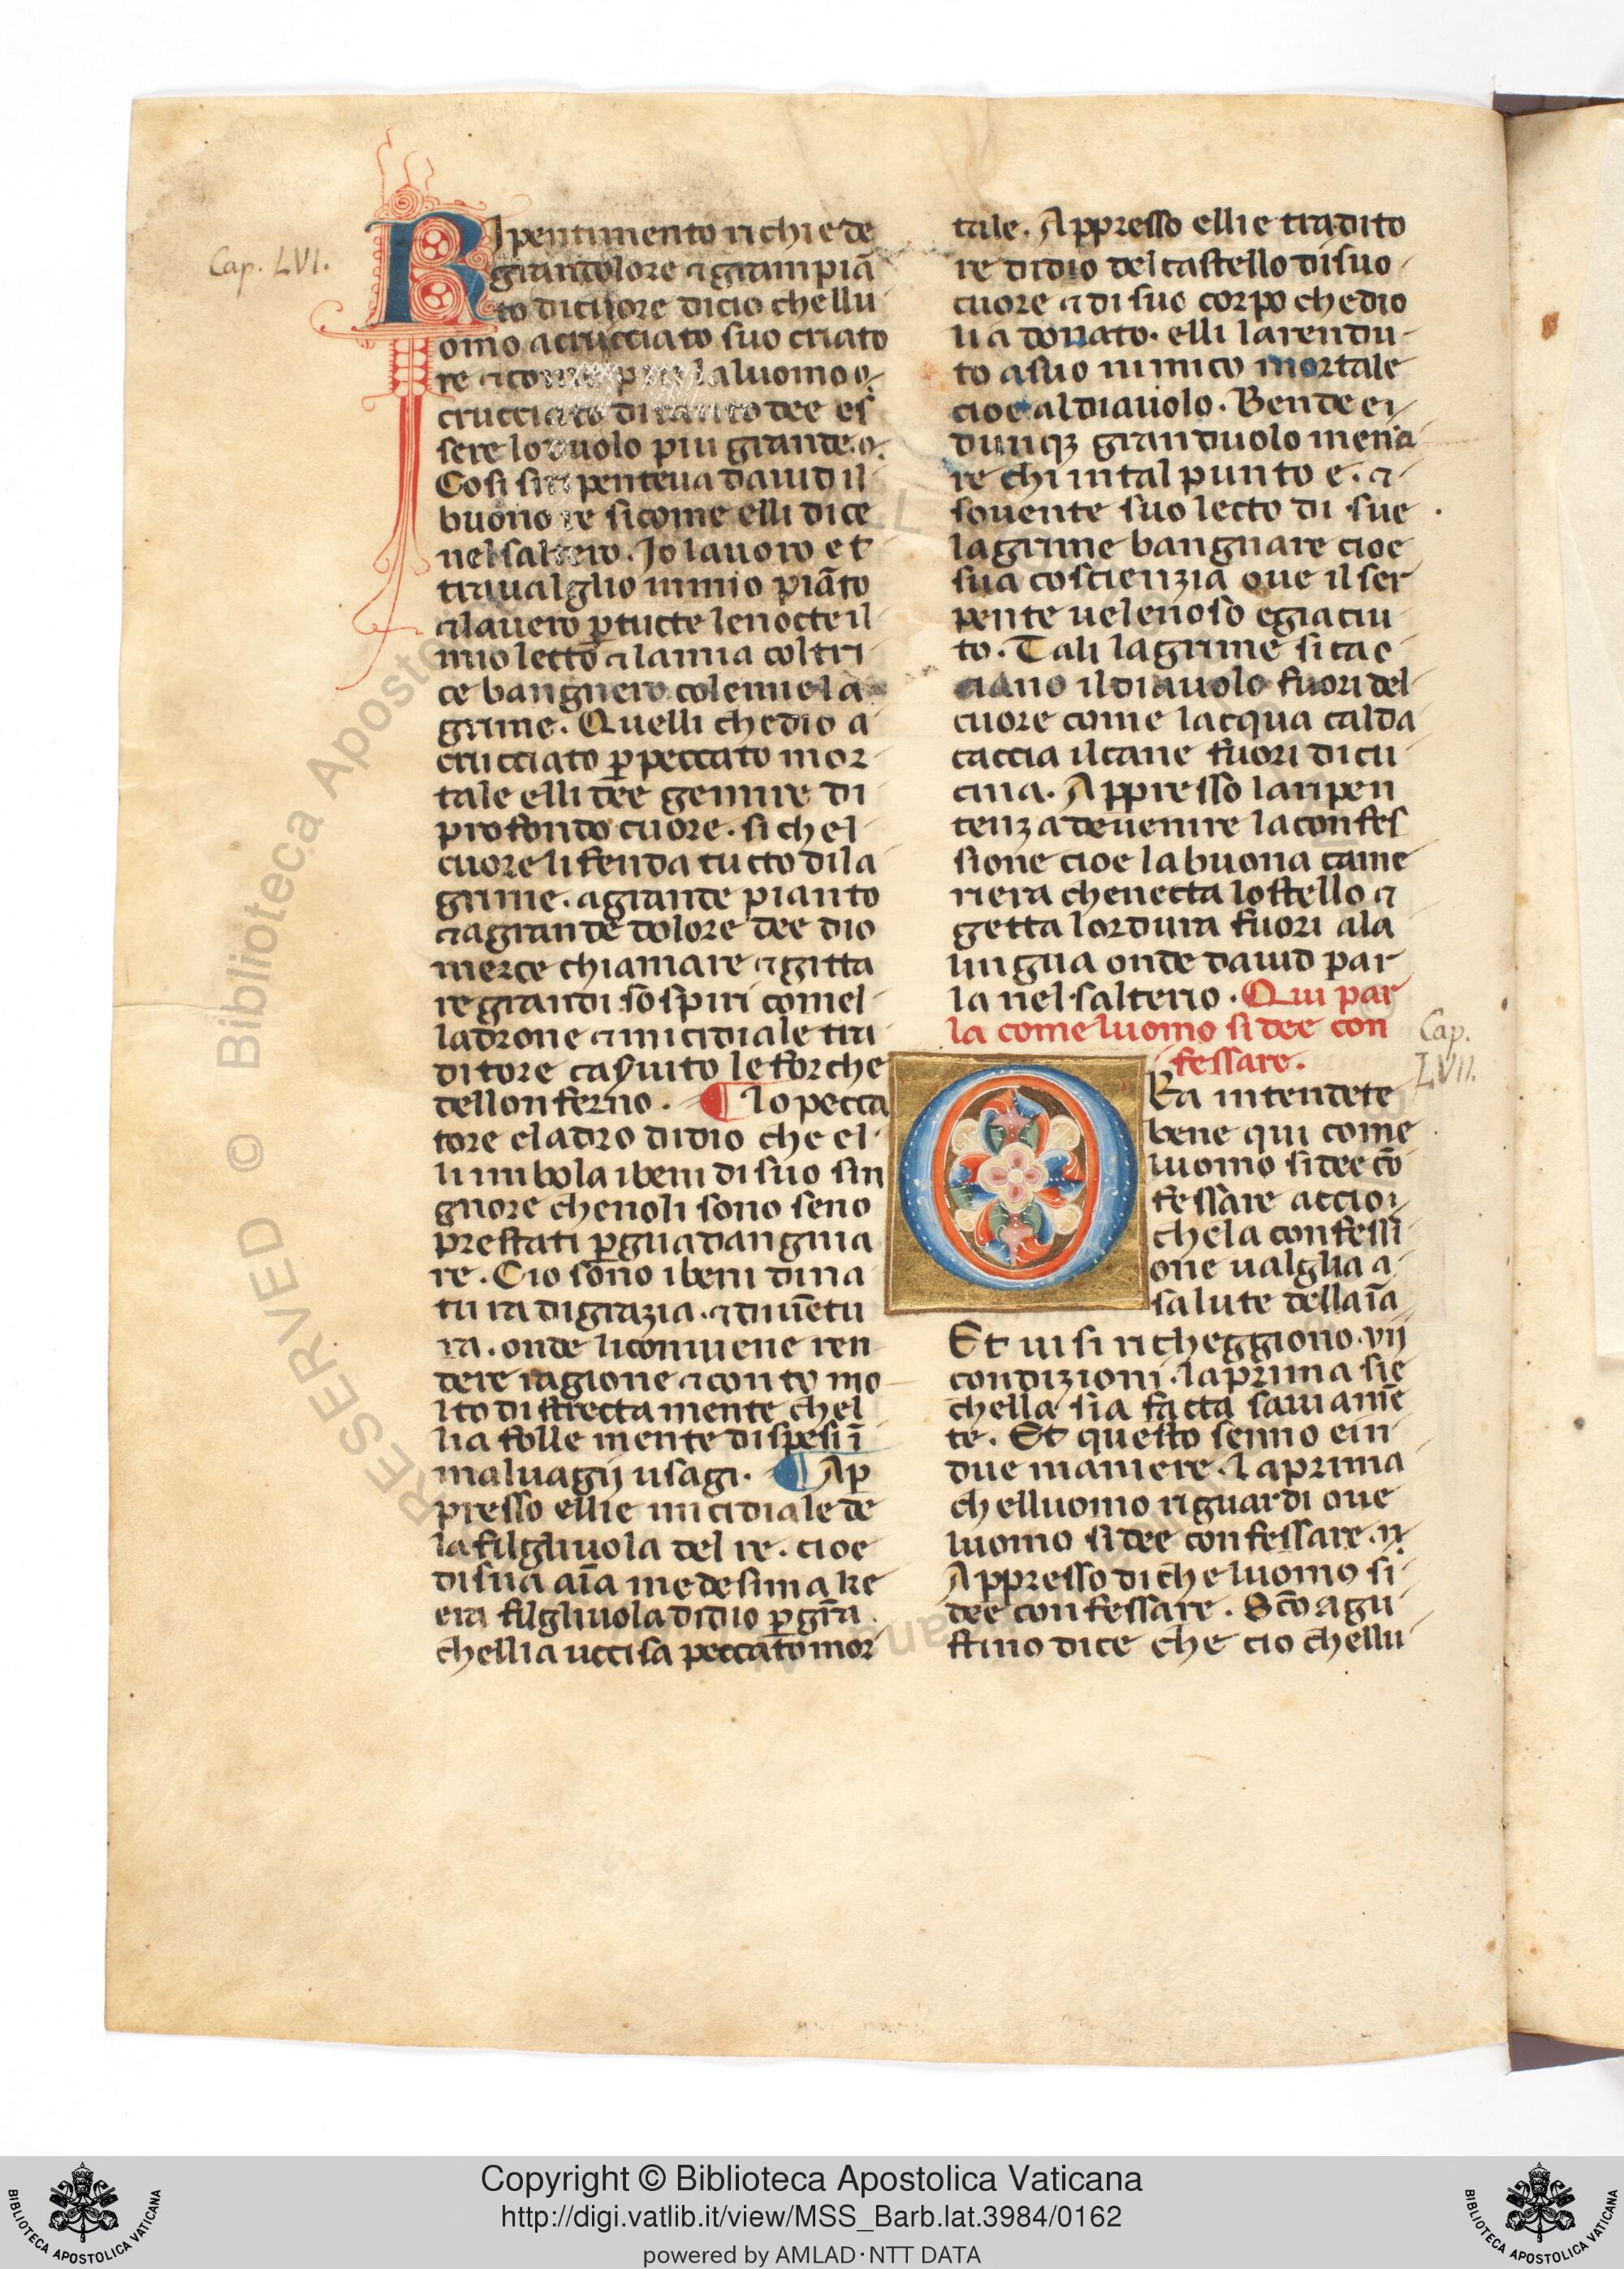 Cap. LVI.
RIpentimento richiede
gran dolore ⁊ gram piā
to di cuore di cio chellu
omo a crucciato suo criato
re ⁊ come p la luomo
crucciato di tanto dee es
sere lo duolo piu grande.
Cosi si ripenteua dauid il
buono re sicome elli dice
nel saltero. Io lauoro et
traualglio in mio piāto
⁊ lauero ꝑ tucte le nocte il
mio letto ⁊ la mia coltri
ce bangnero cole mie la
grime. Quelli che dio a
crucciato ꝑ peccato mor
tale elli dee gemire di
profondo cuore. si chel
cuore li fenda tucto di la
grime. a grande pianto
⁊ a grande dolore dee dio
merce chiamare ⁊ gitta
re grandi sospiri comel
ladrone ⁊ micidiale tra
ditore ca seruito le forche
dellonferno. ¶ lo pecca
tore e ladro di dio che el
li imbola i beni di suo sin
gnore che noli sono seno
prestati ꝑ guadangnia
re. Cio sono i beni di na
tura di grazia. ⁊ duuētu
ra. onde li conuiene ren
dere ragione ⁊ conto mo
lto distrectamente chel
lia folle mente dispesi ī
maluagij usagi. ¶ Ap
presso elli e micidiale de
la filgliuola del re. cioe
di sua aīa medesima ke
era filgliuola di dio ꝑ grā
chellia uccisa peccato mor
tale. Appresso elli e tradito
re di dio del castello di suo
cuore ⁊ di suo corpo che dio
li a donato. elli la rendu
to a suo nimico mortale
cioe al diauolo. Bende ei
dunqꝫ gran duolo mena
re chi in tal punto e. ⁊
souente suo lecto di sue
lagrime bangnare cioe
sua coscienzia oue il ser
pente uelenoso e giaciu
to. Tali lagrime si cac
ciano il diauolo fuori del
cuore come lacqua calda
caccia il cane fuori di cu
cina. Appresso la ripen
tenza de uenire la confes
sione cioe la buona came
riera che necta lostello ⁊
getta lordura fuori a la
lingua onde dauid par
la nel salterio. Qui par
la come luomo si dee con
fessare.
Cap.
LVII.
ORa intendete
bene qui come
luomo si dee cō
fessare accio
che la confessi
one ualglia a
salute della aīa
Et ui si richeggiono. vij
condizioni. la prima sie
chella sia facta sauiamē
te. Et questo senno e in
due maniere. La prima
chelluomo riguardi oue
luomo si dee confessare.
Appresso di che luomo si
dee confessare. Sc̄o agu
stino dice che cio chellu
Copyright © Biblioteca Apostolica Vaticana
http://digi.vatlib.it/view/MSS_Barb.lat.3984/0162
powered by AMLAD·NTT DATA
BIBLIOTECA APOSTOLICA VATICANA
BIBLIOTECA APOSTOLICA VATICANA